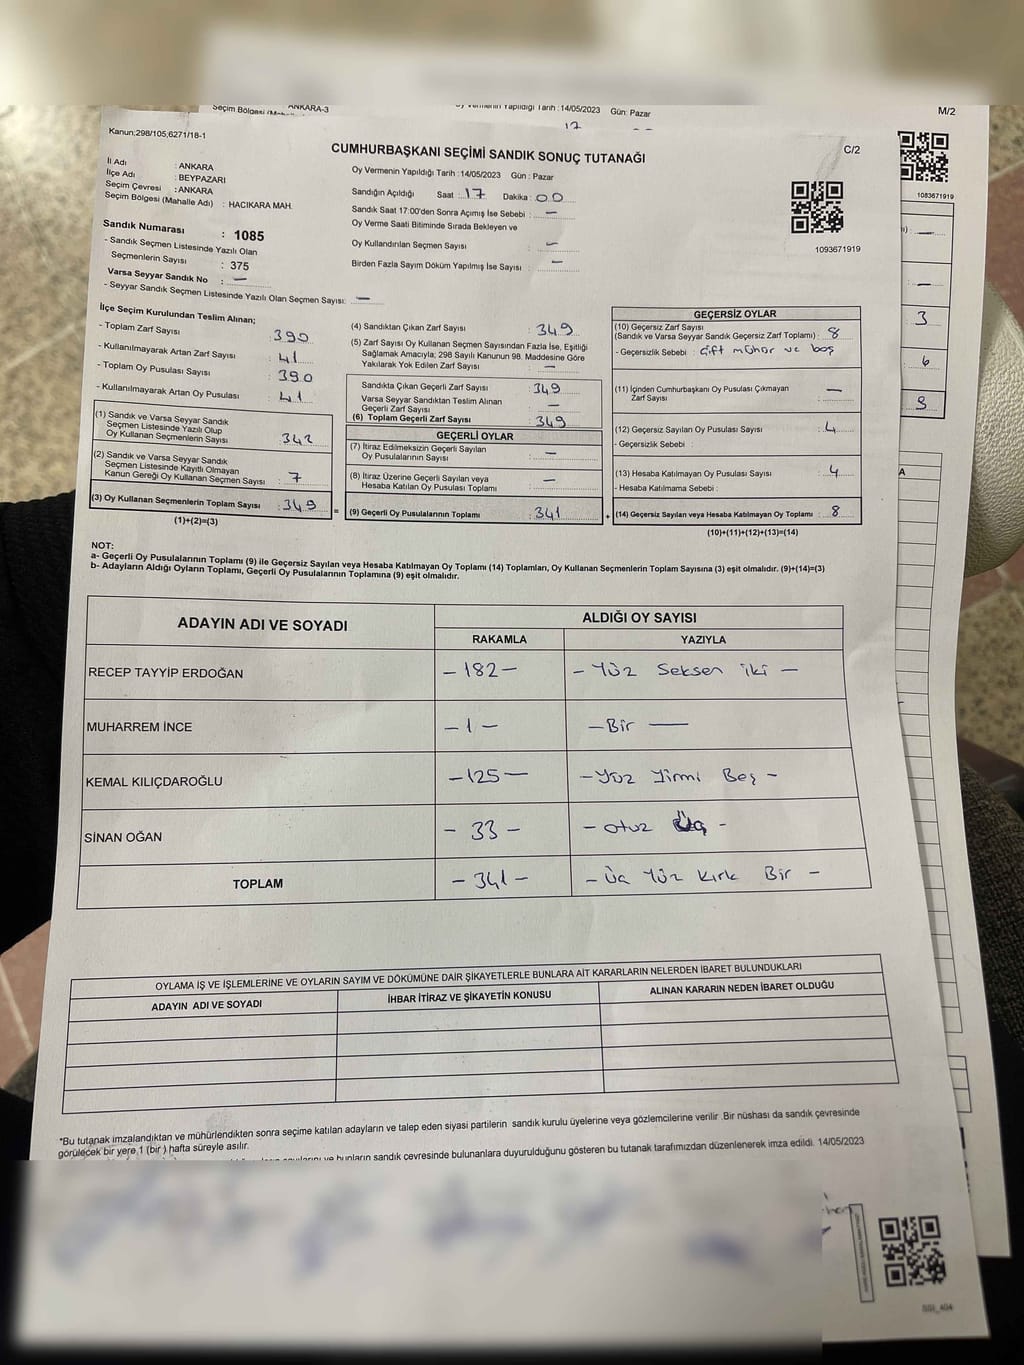 Seçim Bölgesi
ANKARA-3
Oy Vermenin Yapıldığı Tarih : 14/05/2023 Gün: Pazar
M/2
17
Kanun;298/105,6271/18-1
CUMHURBAŞKANI SEÇİMİ SANDIK SONUÇ TUTANAĞI
C/2
İl Adı : ANKARA
İlçe Adı : BEYPAZARI
Seçim Çevresi : ANKARA
Seçim Bölgesi (Mahalle Adı) : HACIKARA MAH.
Oy Vermenin Yapıldığı Tarih : 14/05/2023 Gün : Pazar
Sandığın Açıldığı Saat : 17 Dakika : 00
Sandık Saat 17:00'den Sonra Açımış İse Sebebi : —
Oy Verme Saati Bitiminde Sırada Bekleyen ve
Oy Kullandırılan Seçmen Sayısı : —
Birden Fazla Sayım Döküm Yapılmış İse Sayısı : —
1093671919
1083671919
Sandık Numarası : 1085
- Sandık Seçmen Listesinde Yazılı Olan
Seçmenlerin Sayısı : 375
Varsa Seyyar Sandık No : —
- Seyyar Sandık Seçmen Listesinde Yazılı Olan Seçmen Sayısı: —
İlçe Seçim Kurulundan Teslim Alınan;
- Toplam Zarf Sayısı : 390
- Kullanılmayarak Artan Zarf Sayısı : 41
- Toplam Oy Pusulası Sayısı : 390
- Kullanılmayarak Artan Oy Pusulası : 41
(1) Sandık ve Varsa Seyyar Sandık
Seçmen Listesinde Yazılı Olup
Oy Kullanan Seçmenlerin Sayısı : 342
(2) Sandık ve Varsa Seyyar Sandık
Seçmen Listesinde Kayıtlı Olmayan
Kanun Gereği Oy Kullanan Seçmen Sayısı : 7
(3) Oy Kullanan Seçmenlerin Toplam Sayısı : 349 =
(1)+(2)=(3)
(4) Sandıktan Çıkan Zarf Sayısı : 349
(5) Zarf Sayısı Oy Kullanan Seçmen Sayısından Fazla İse, Eşitliği
Sağlamak Amacıyla; 298 Sayılı Kanunun 98. Maddesine Göre
Yakılarak Yok Edilen Zarf Sayısı : —
Sandıkta Çıkan Geçerli Zarf Sayısı : 349
Varsa Seyyar Sandıktan Teslim Alınan
Geçerli Zarf Sayısı : —
(6) Toplam Geçerli Zarf Sayısı : 349
GEÇERLİ OYLAR
(7) İtiraz Edilmeksizin Geçerli Sayılan
Oy Pusulalarının Sayısı : —
(8) İtiraz Üzerine Geçerli Sayılan veya
Hesaba Katılan Oy Pusulası Toplamı : —
(9) Geçerli Oy Pusulalarının Toplamı : 341 +
GEÇERSİZ OYLAR
(10) Geçersiz Zarf Sayısı
(Sandık ve Varsa Seyyar Sandık Geçersiz Zarf Toplamı) : 8
- Geçersizlik Sebebi : Çift mühür ve boş
(11) İçinden Cumhurbaşkanı Oy Pusulası Çıkmayan
Zarf Sayısı : —
(12) Geçersiz Sayılan Oy Pusulası Sayısı : 4
- Geçersizlik Sebebi :
(13) Hesaba Katılmayan Oy Pusulası Sayısı : 4
- Hesaba Katılmama Sebebi :
(14) Geçersiz Sayılan veya Hesaba Katılmayan Oy Toplamı : 8
(10)+(11)+(12)+(13)=(14)
—
—
3
6
A
NOT:
a- Geçerli Oy Pusulalarının Toplamı (9) ile Geçersiz Sayılan veya Hesaba Katılmayan Oy Toplamı (14) Toplamları, Oy Kullanan Seçmenlerin Toplam Sayısına (3) eşit olmalıdır. (9)+(14)=(3)
b- Adayların Aldığı Oyların Toplamı, Geçerli Oy Pusulalarının Toplamına (9) eşit olmalıdır.
ADAYIN ADI VE SOYADI
ALDIĞI OY SAYISI
RAKAMLA YAZIYLA
RECEP TAYYİP ERDOĞAN – 182 – – Yüz Seksen iki –
MUHARREM İNCE – 1 – – Bir —
KEMAL KILIÇDAROĞLU – 125 – – Yüz Yirmi Beş –
SİNAN OĞAN – 33 – – otuz Üç –
TOPLAM – 341 – – Üç Yüz Kırk Bir –
OYLAMA İŞ VE İŞLEMLERİNE VE OYLARIN SAYIM VE DÖKÜMÜNE DAİR ŞİKAYETLERLE BUNLARA AİT KARARLARIN NELERDEN İBARET BULUNDUKLARI
ADAYIN ADI VE SOYADI İHBAR İTİRAZ VE ŞİKAYETİN KONUSU ALINAN KARARIN NEDEN İBARET OLDUĞU
*Bu tutanak imzalandıktan ve mühürlendikten sonra seçime katılan adayların ve talep eden siyasi partilerin sandık kurulu üyelerine veya gözlemcilerine verilir .Bir nüshası da sandık çevresinde
görülecek bir yere 1 (bir ) hafta süreyle asılır.
ve bunların sandık çevresinde bulunanlara duyurulduğunu gösteren bu tutanak tarafımızdan düzenlenerek imza edildi. 14/05/2023